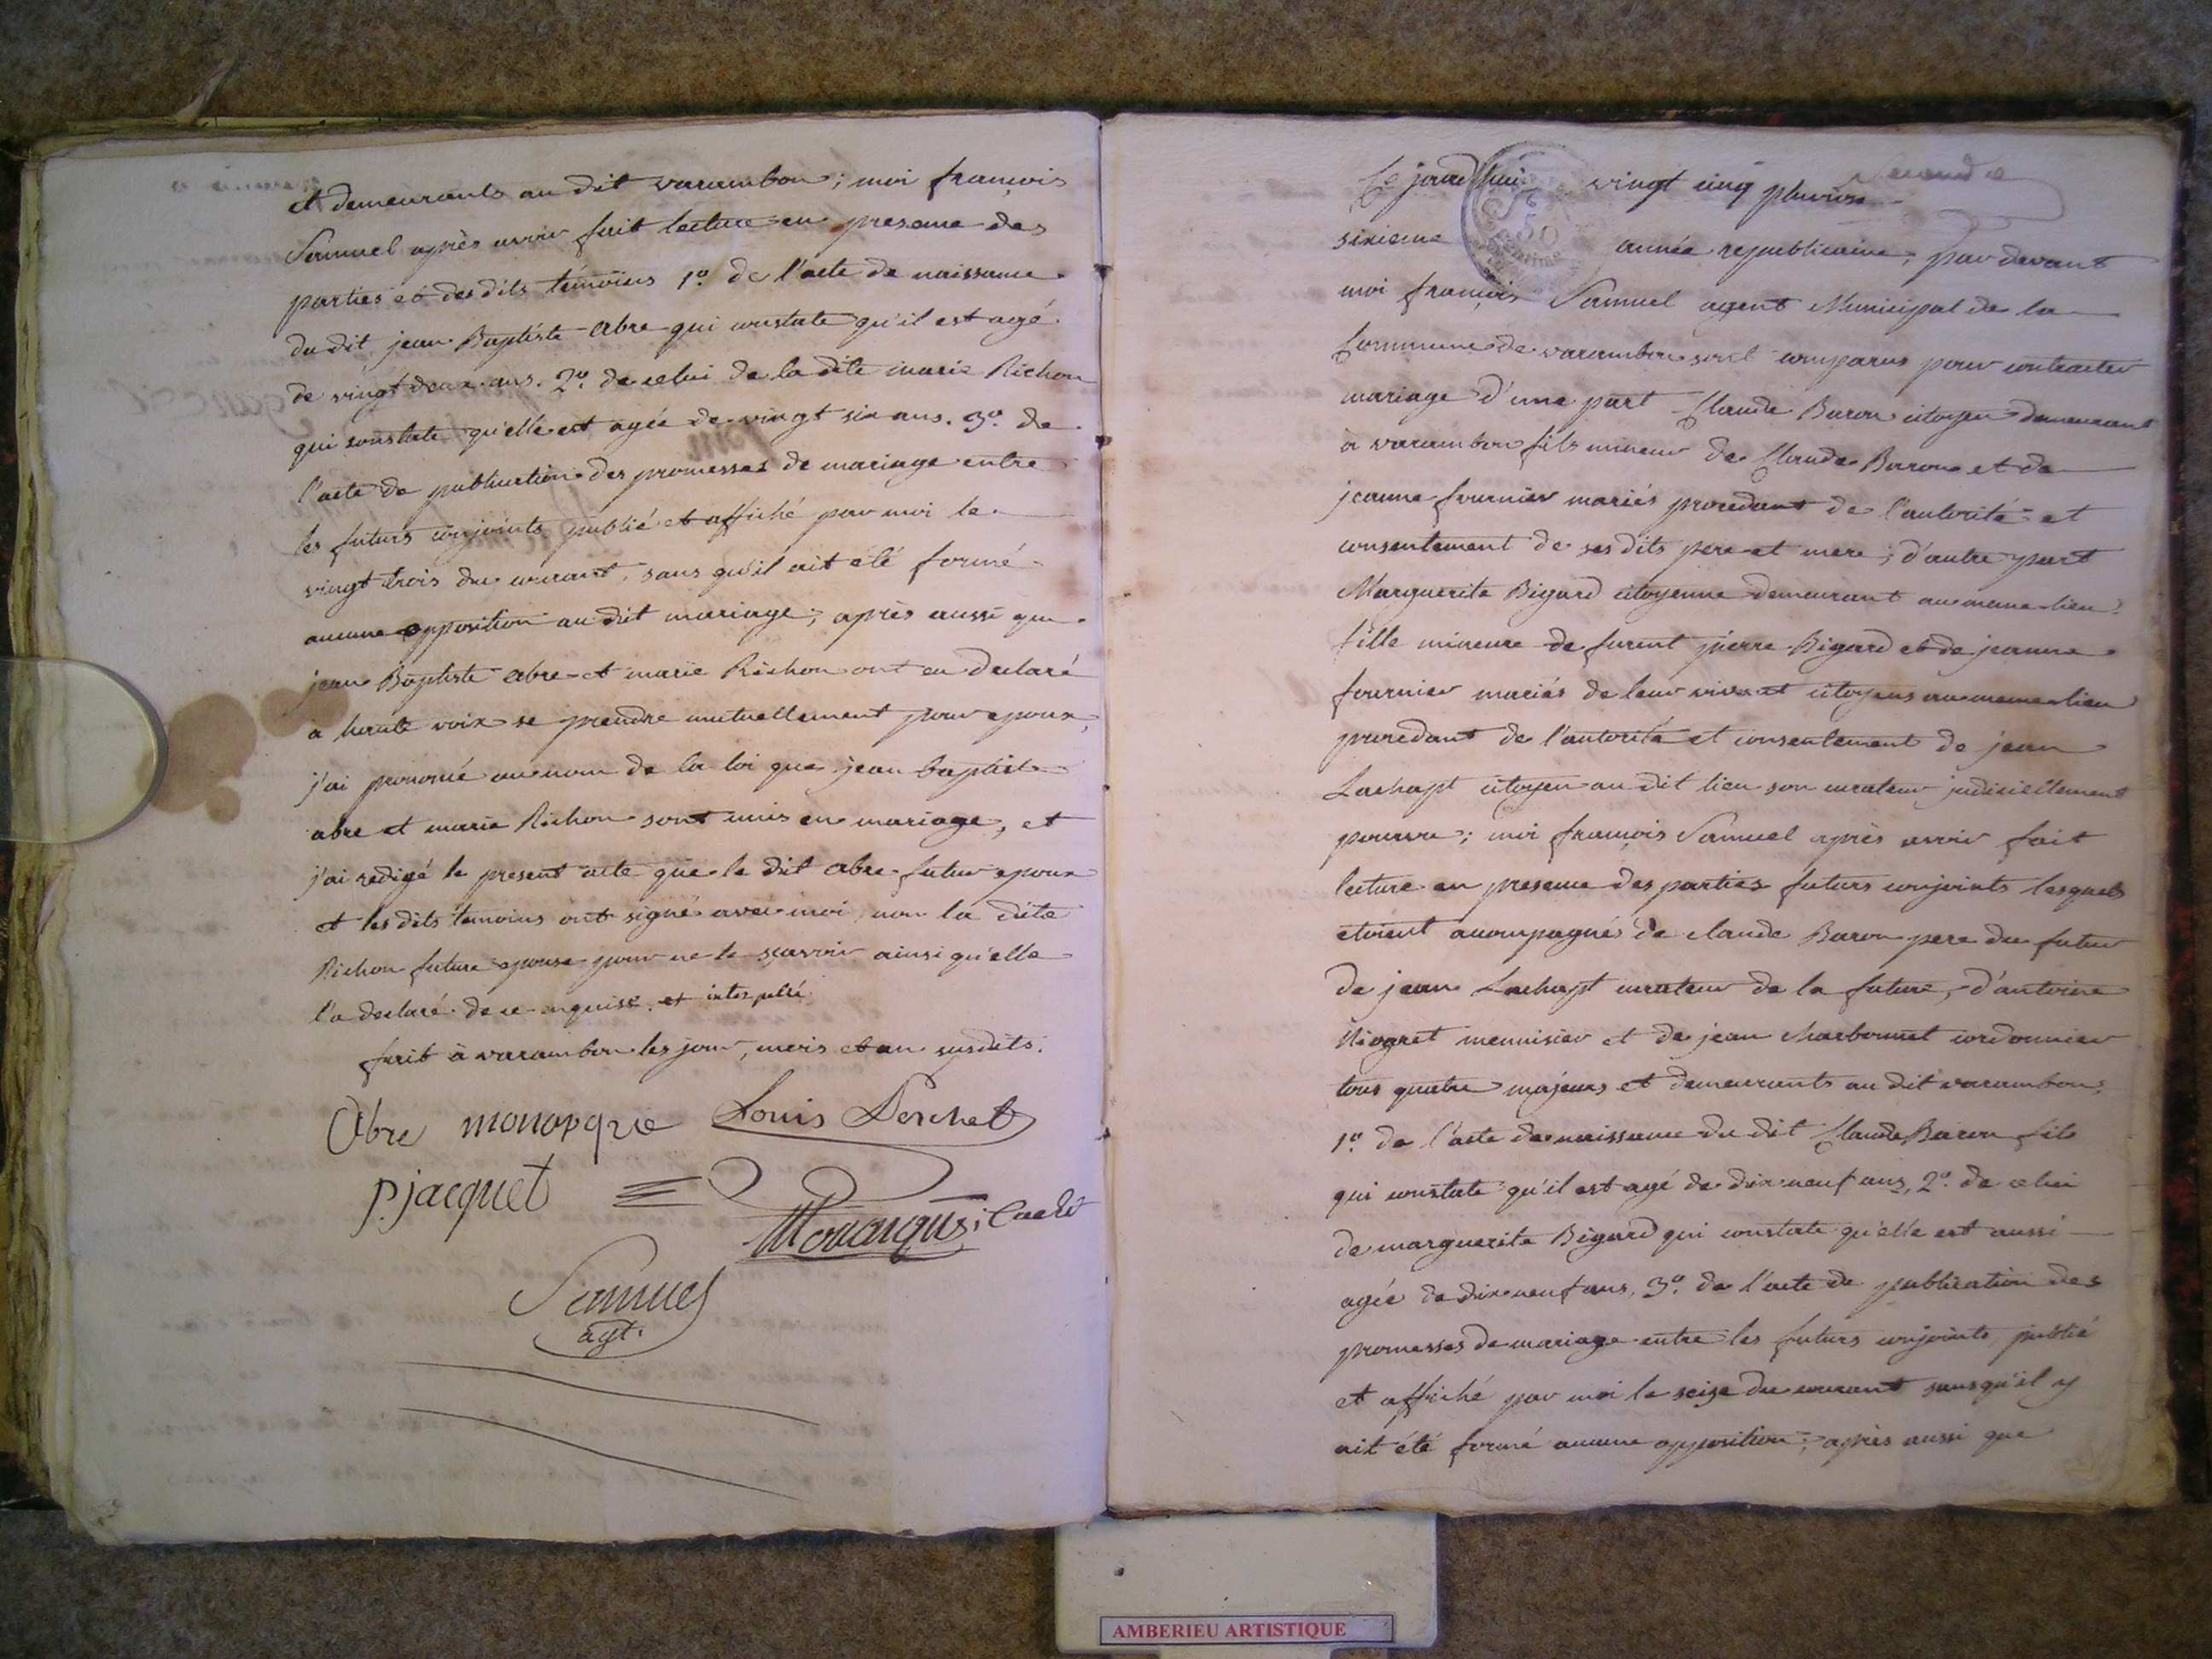 et demeurants au dit varambon; moi françois
Samuel après avoir fait lecture en presence des
parties et des dits témoins 1º. de l'acte de naissance
du dit jean Baptiste Abre qui constate qu'il est agé
de vingt deux ans. 2º. de celui de la dite marie Richon
qui constate qu'elle est agée de vingt six ans. 3º. de
l'acte de publication des promesses de mariage entre
les futurs conjoints publié et affiché par moi le
vingt trois du courant, sans qu'il ait été formé
aucune opposition au dit mariage; après aussi que
jean Baptiste Abre et marie Richon ont eu declaré
a haute voix se prendre mutuellement pour epoux,
j'ai prononcé au nom de la loi que jean baptiste
abre et marie Richon sont unis en mariage, et
j'ai redigé le present acte que le dit Abre futur epoux
et les dits temoins ont signé avec moi, non la dite
Richon future epouse pour ne le sçavoir ainsi qu'elle
l'a declaré de ce enquise et interpellé
fait à varambon les jour, mois et an susdits.
Abre monarque Louis Perchet
P. jacquet
Monarque cadet
Samuel
agt.
Ce jourd'hui vingt cinq pluviose
sixieme année republicaine; par devant
moi françois Samuel agent Municipal de la
Commune de varambon sont comparus pour contracter
mariage d'une part Claude Baron citoyen demeurant
à varambon fils mineur de Claude Baron et de
jeanne fournier mariés procedant de l'autorité et
consentement de ses dits pere et mere; d'autre part
Marguerite Bigard citoyenne demeurant au meme lieu
fille mineure de furent pierre Bigard et de jeanne
fournier mariés de leur vivant citoyens au meme lieu
procedant de l'autorité et consentement de jean
Lachapt citoyen au dit lieu son curateur judiciellement
pourvu; moi françois Samuel après avoir fait
lecture en presence des parties futurs conjoints lesquels
etoient accompagnés de claude Baron pere du futur
de jean Lachapt curateur de la future, d'antoine
Niogret menuisier et de jean charbonnet cordonnier
tous quatre majeurs et demeurants au dit varambon,
1º. de l'acte de naissance du dit Claude Baron fils
qui constate qu'il est agé de dix neuf ans, 2º. de celui
de marguerite Bigard qui constate qu'elle est aussi
agée de dix neuf ans, 3º. de l'acte de publication des
promesses de mariage entre les futurs conjoints publié
et affiché par moi le seize du courant sans qu'il y
ait été formé aucune opposition; après aussi que
AMBERIEU ARTISTIQUE